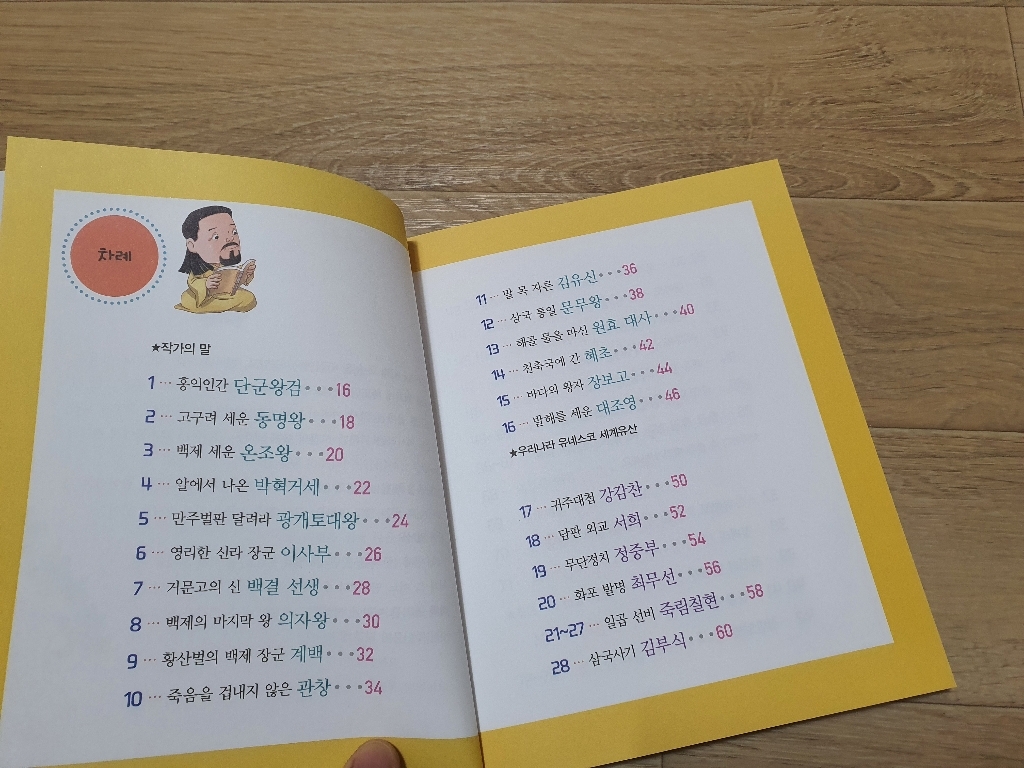 차례
★작가의 말
1 ··· 홍익인간 단군왕검 • • • 16
2 ··· 고구려 세운 동명왕 • • • 18
3 ··· 백제 세운 온조왕 • • • 20
4 ··· 알에서 나온 박혁거세 • • • 22
5 ··· 만주벌판 달려라 광개토대왕 • • • 24
6 ··· 영리한 신라 장군 이사부 • • • 26
7 ··· 거문고의 신 백결 선생 • • • 28
8 ··· 백제의 마지막 왕 의자왕 • • • 30
9 ··· 황산벌의 백제 장군 계백 • • • 32
10 ··· 죽음을 겁내지 않은 관창 • • • 34
11 ··· 말 목 자른 김유신 • • • 36
12 ··· 삼국 통일 문무왕 • • • 38
13 ··· 해골 물을 마신 원효 대사 • • • 40
14 ··· 천축국에 간 혜초 • • • 42
15 ··· 바다의 왕자 장보고 • • • 44
16 ··· 발해를 세운 대조영 • • • 46
★우리나라 유네스코 세계유산
17 ··· 귀주대첩 강감찬 • • • 50
18 ··· 담판 외교 서희 • • • 52
19 ··· 무단정치 정중부 • • • 54
20 ··· 화포 발명 최무선 • • • 56
21~27 ··· 일곱 선비 죽림칠현 • • • 58
28 ··· 삼국사기 김부식 • • • 60